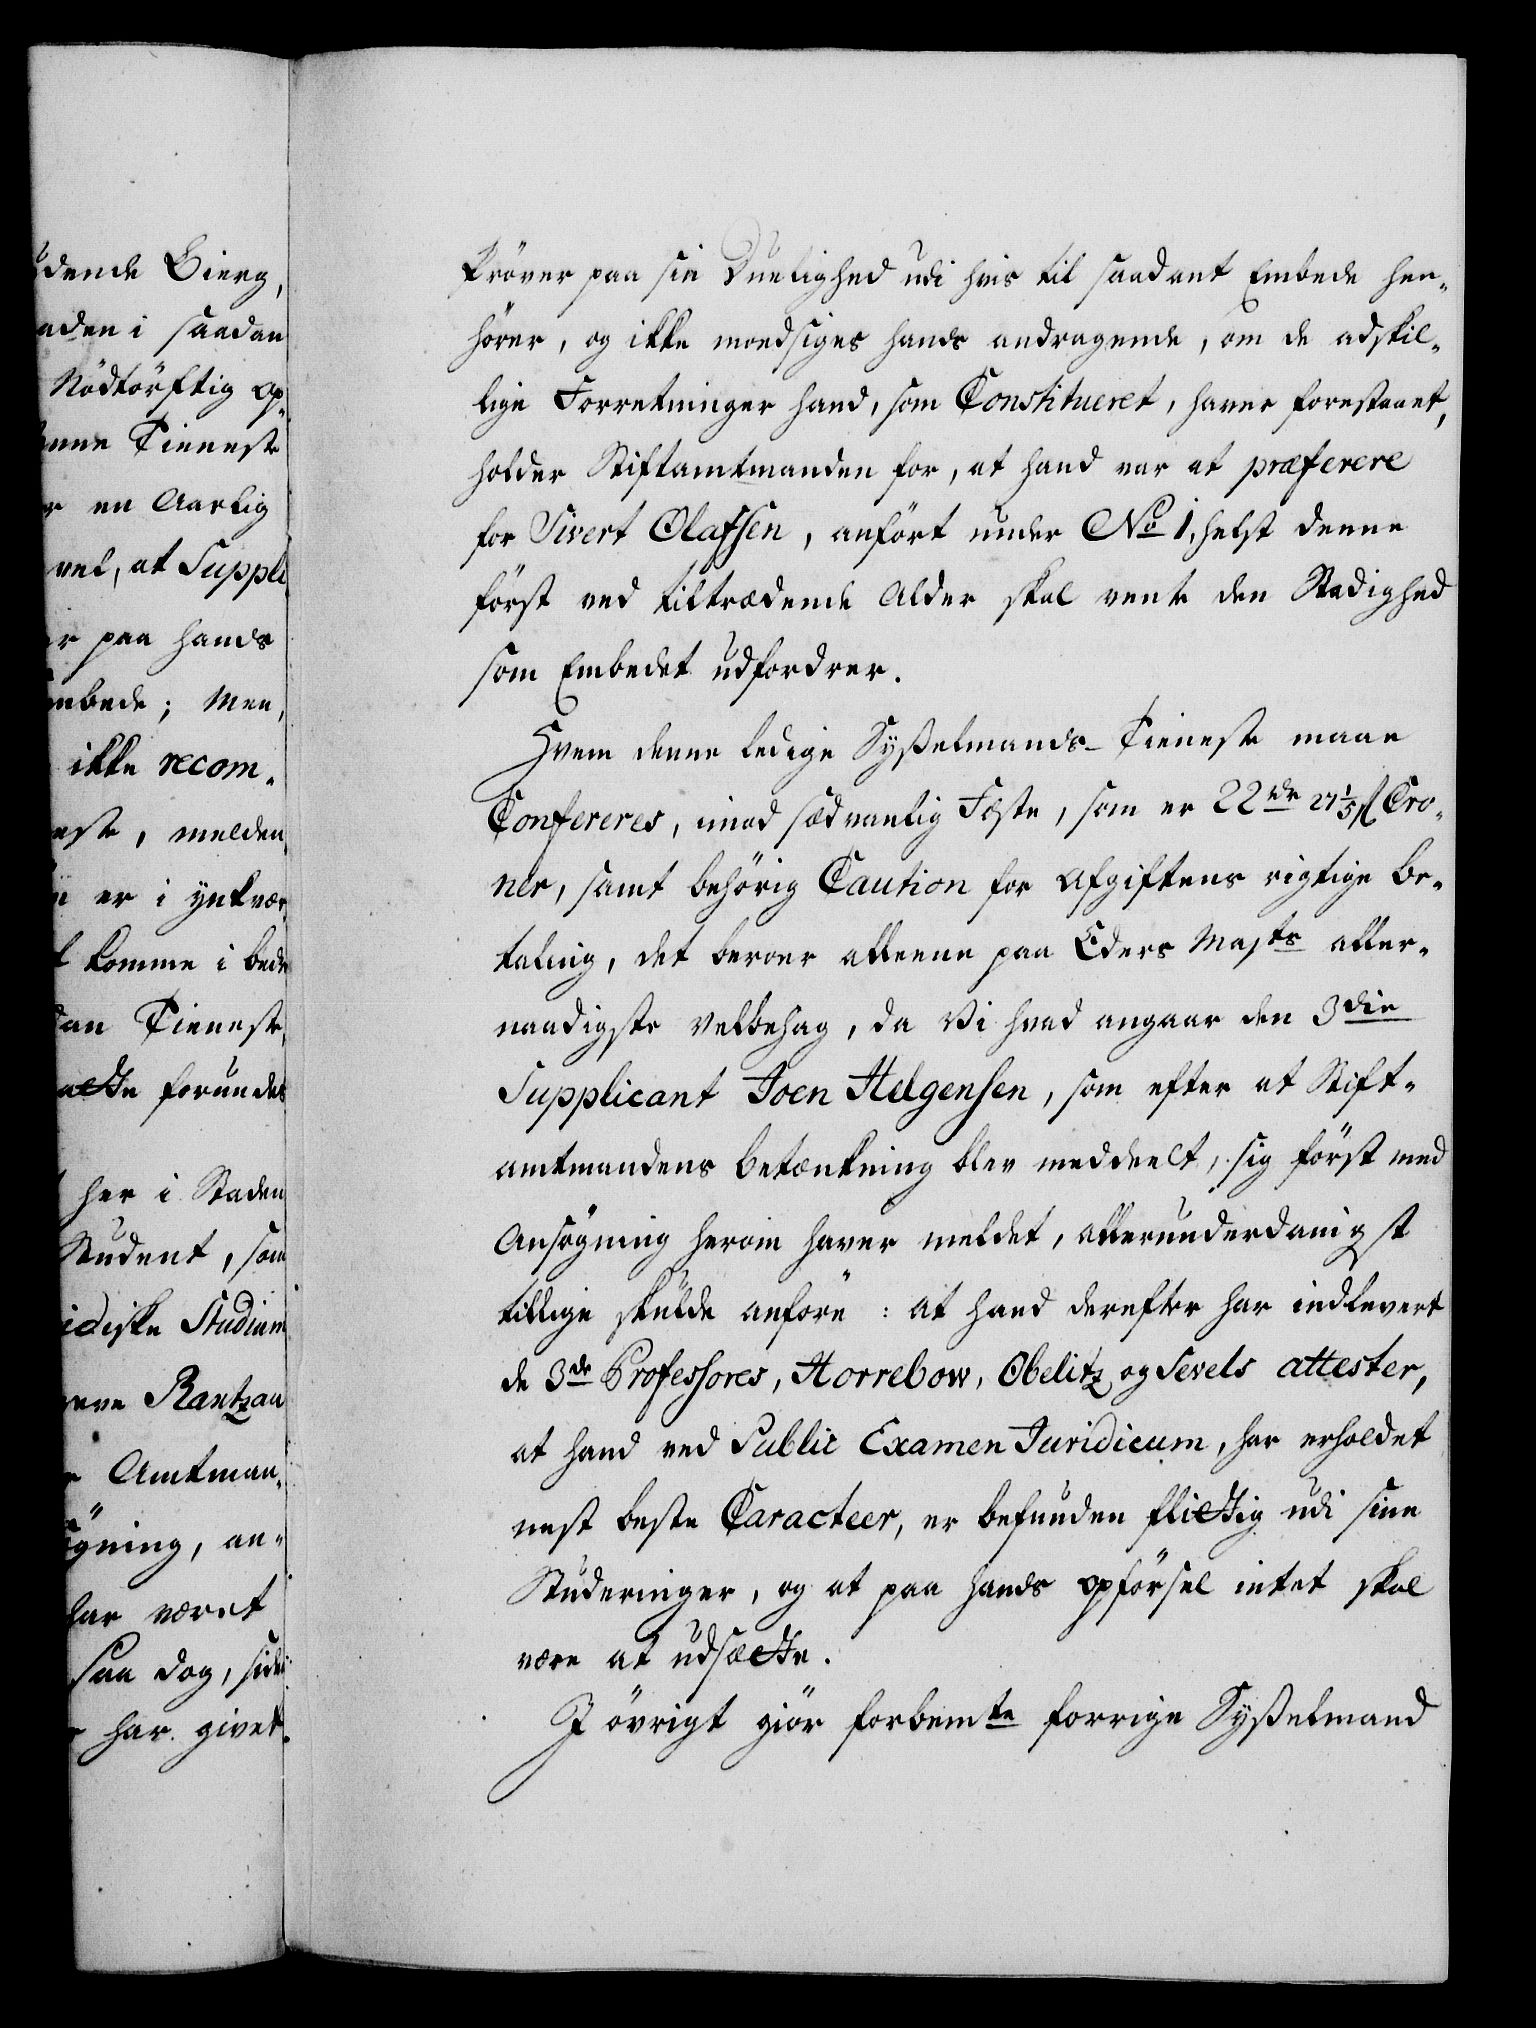 dende Bierg,
aden i saadan
Nödtörftig op-
nne Tieneste
en Aarlig
vel, at Suppli
er paa hands
mbede; Men,
ikke recom-
este, melden,
er i
komme i bed
an Tieneste,
ætte forundes
her i Staden
Student, som
idiske Studium
eve Rantzau
Amtman-
gning, an-
har været
saa dog, side
har givet.
Pröver paa sin Duelighed udi hvis til saadant Embede hen-
hörer, og ikke moedsiges hands andragende, om de adskil-
lige Forretninger hand, som Constitueret, haver forestaaet,
holder Stiftamtmanden for, at hand var at præferere
for Sivert Olafsen, anfört under No 1, helst denne
först ved tiltrædende Alder skal vente den Stadighed
som Embedet udfordrer.
Hvem denne ledige Sysselmands-Tieneste maae
Confereres, imod sædvanlig Fæste, som er 22 rdr 27 1/5 ß Cro-
ner, samt behörig Caution for Afgiftens rigtige be-
taling, det beroer alleene paa Eders Majts aller-
naadigste velbehag, da Vi hvad angaar den 3die
Supplicant Joen Helgensen, som efter at Stift-
amtmandens betænkning blev meddeelt, sig först med
Ansögning herom haver meldet, allerunderdanigst
tillige skulde anföre: at hand derefter har indlevert
de 3de Professores, Horrebow, Obelitz og Sevels attester,
at hand ved Public Examen Juridicum, har erholdet
nest beste Caracteer, er befunden flittig udi sine
Studeringer, og at paa hands opförsel intet skal
være at udsætte.
I övrigt giör forbemte forrige Sysselmand